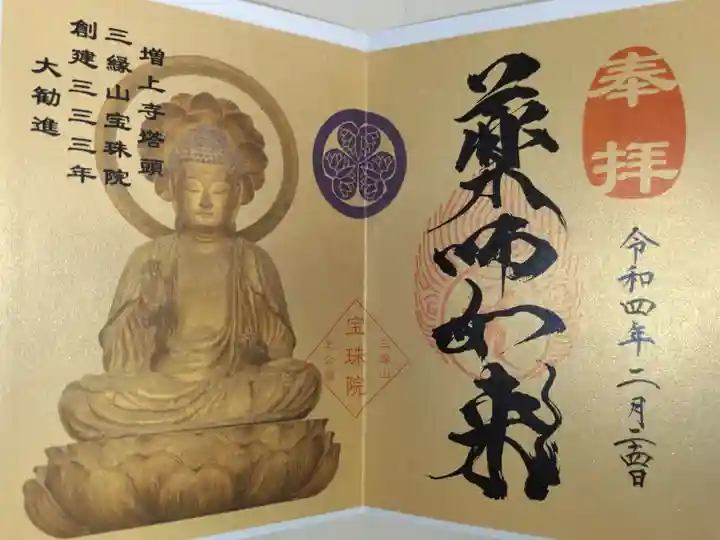 奉拝
薬師如来
令和四年二月二四日
増上寺塔頭
三縁山宝珠院
創建三三三年
大勧進
三縁山
宝珠院